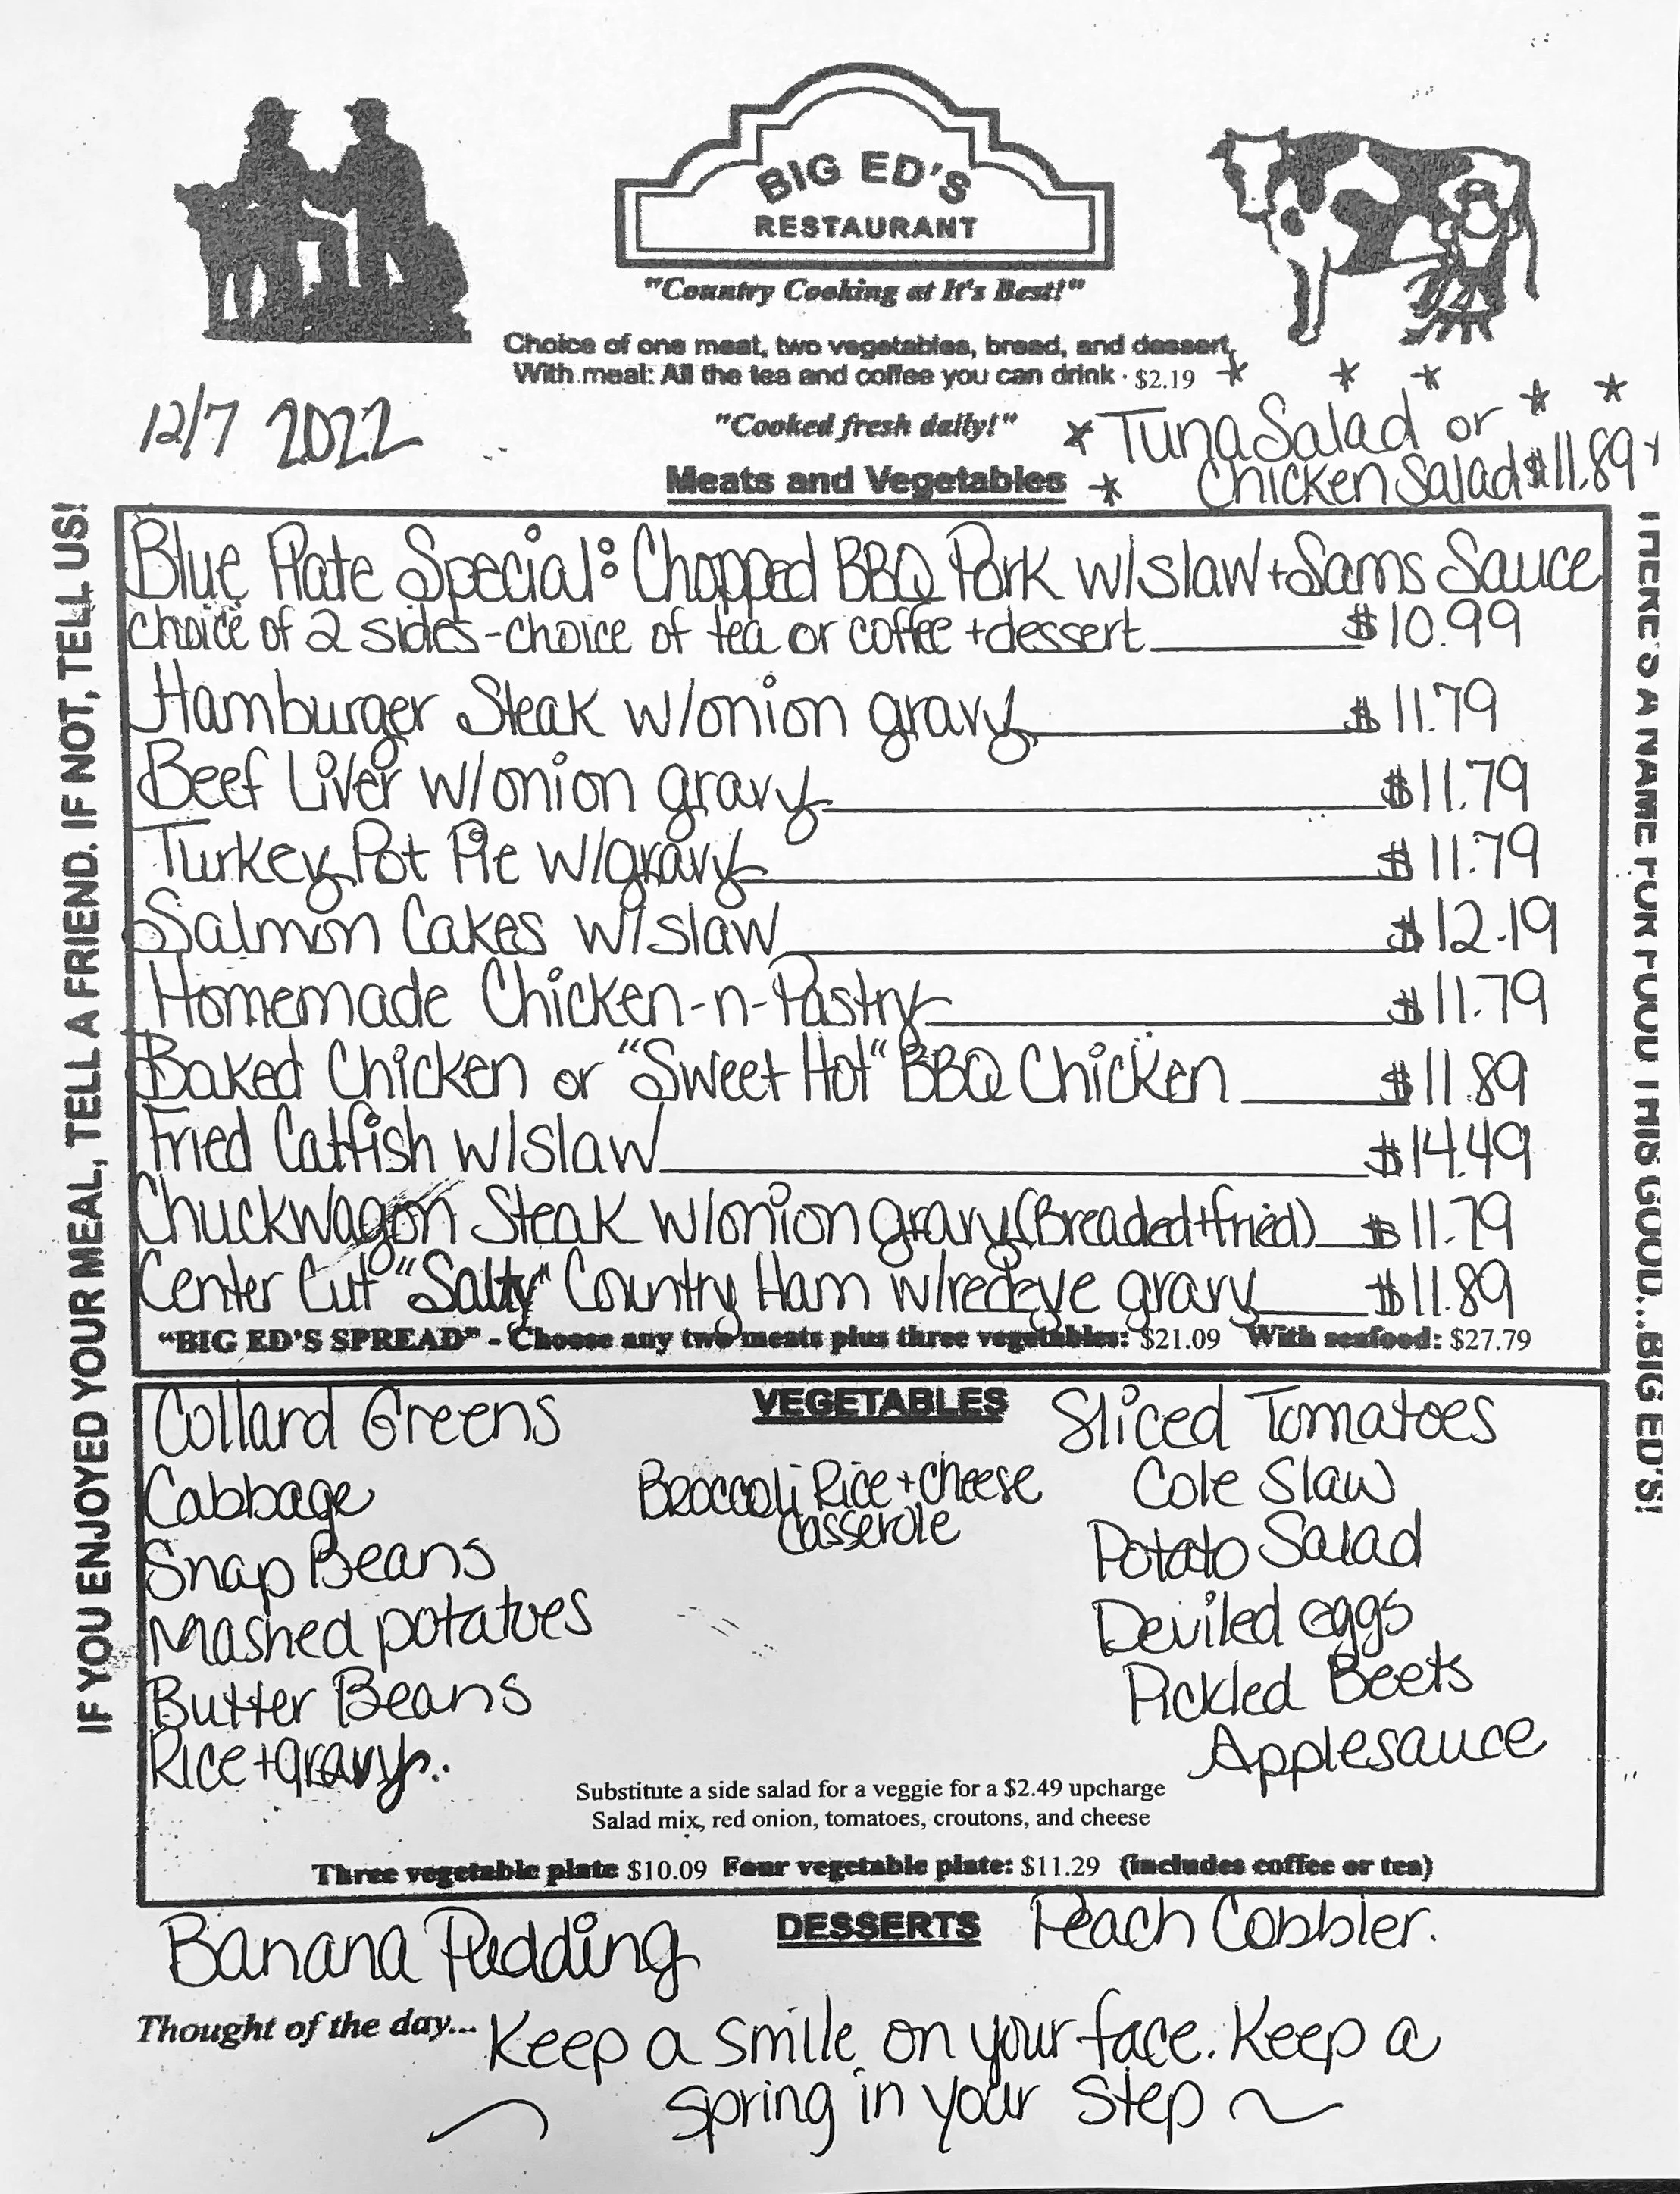 BIG ED'S
RESTAURANT
"Country Cooking at It's Best!"
Choice of one meat, two vegetables, bread, and dessert
With meal: All the tea and coffee you can drink · $2.19
12/7 2022
"Cooked fresh daily!"
Tuna Salad or
Chicken Salad $11.89
Meats and Vegetables
IF YOU ENJOYED YOUR MEAL, TELL A FRIEND. IF NOT, TELL US!
THERE'S A NAME FOR FOOD THIS GOOD...BIG ED'S!
Blue Plate Special: Chopped BBQ Pork w/slaw + Sams Sauce
choice of 2 sides - choice of tea or coffee + dessert $10.99
Hamburger Steak w/onion gravy $11.79
Beef Liver w/onion gravy $11.79
Turkey Pot Pie w/gravy $11.79
Salmon Cakes w/slaw $12.19
Homemade Chicken-n-Pastry $11.79
Baked Chicken or "Sweet Hot" BBQ Chicken $11.89
Fried Catfish w/slaw $14.49
Chuckwagon Steak w/onion gravy (Breaded + fried) $11.79
Center Cut "Salty" Country Ham w/redeye gravy $11.89
"BIG ED'S SPREAD" - Choose any two meats plus three vegetables: $21.09 With seafood: $27.79
VEGETABLES
Collard Greens
Cabbage
Snap Beans
Mashed potatoes
Butter Beans
Rice + gravy
Broccoli Rice + cheese
casserole
Sliced Tomatoes
Cole Slaw
Potato Salad
Deviled eggs
Pickled Beets
Applesauce
Substitute a side salad for a veggie for a $2.49 upcharge
Salad mix, red onion, tomatoes, croutons, and cheese
Three vegetable plate $10.09 Four vegetable plate: $11.29 (includes coffee or tea)
DESSERTS
Banana Pudding
Peach Cobbler.
Thought of the day... Keep a smile on your face. Keep a
spring in your step ~